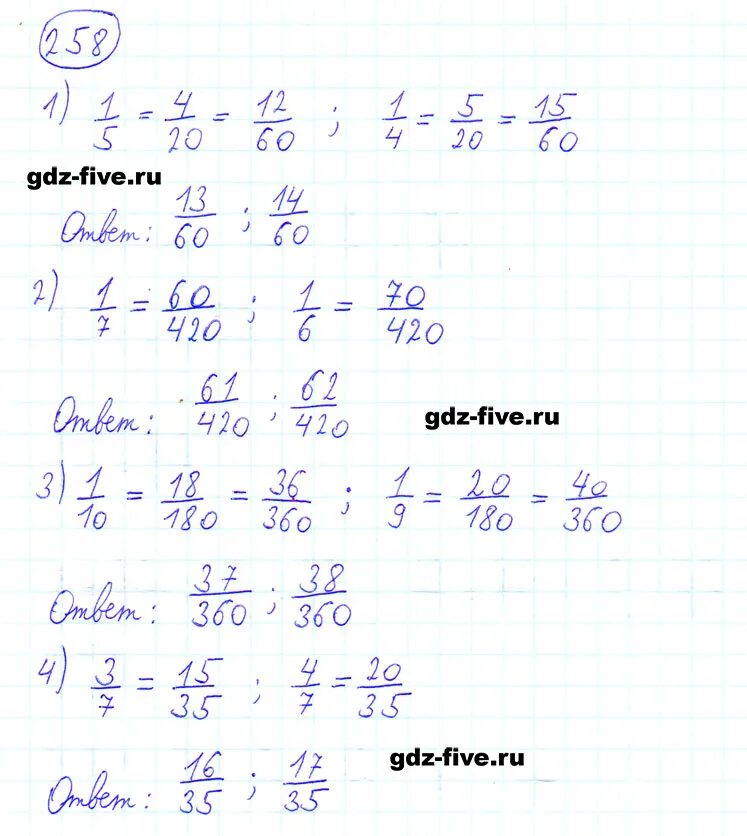 258
1) 1/5 = 4/20 = 12/60 ; 1/4 = 5/20 = 15/60
gdz-five.ru
Ответ: 13/60 ; 14/60
2) 1/7 = 60/420 ; 1/6 = 70/420
Ответ: 61/420 ; 62/420
gdz-five.ru
3) 1/10 = 18/180 = 36/360 ; 1/9 = 20/180 = 40/360
Ответ: 37/360 ; 38/360
4) 3/7 = 15/35 ; 4/7 = 20/35
gdz-five.ru
Ответ: 16/35 ; 17/35